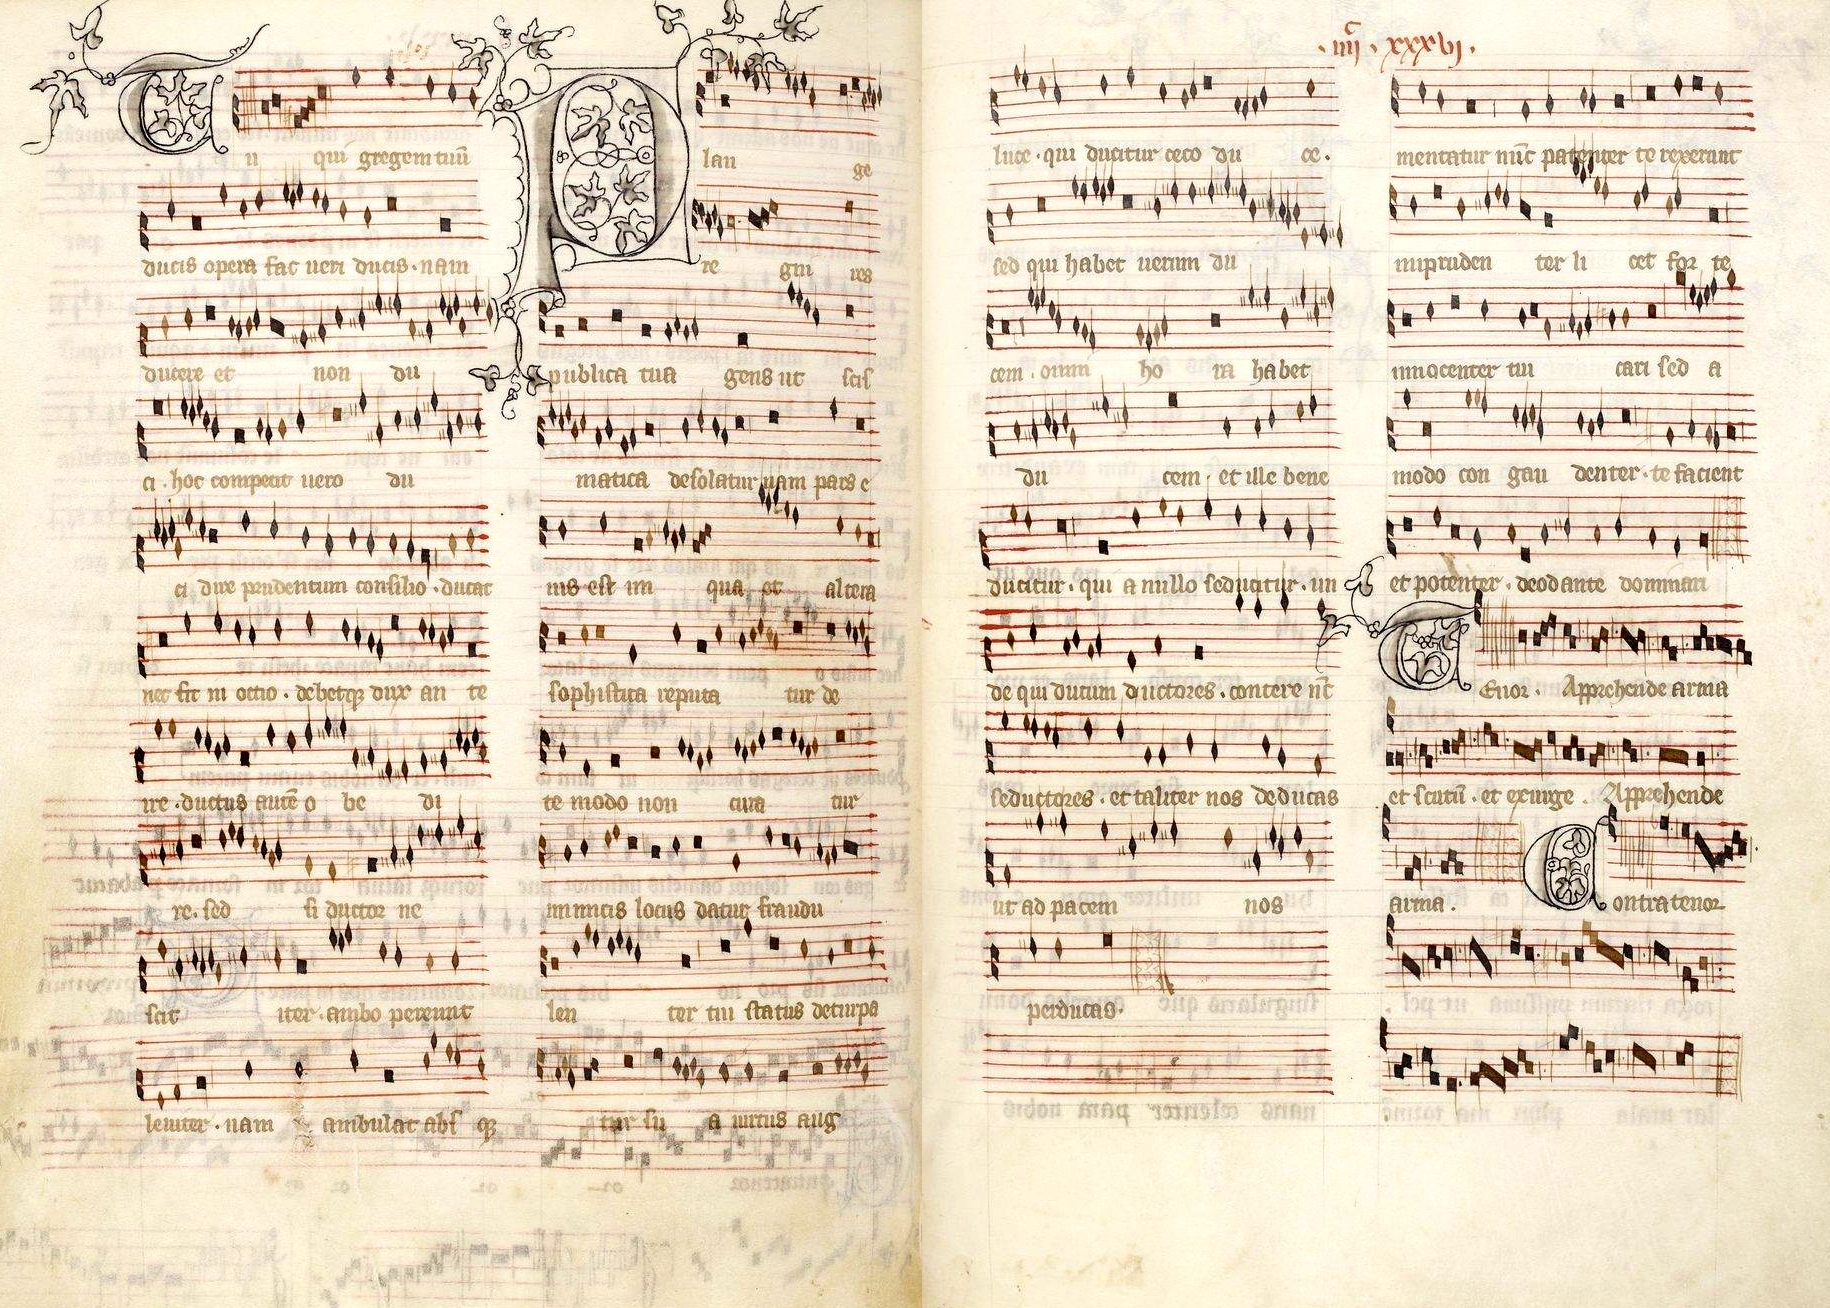 .iiijc. xxxvi.
Tu qui gregem tuū
ducis opera fac veri ducis. nam
ducere et non du
ci. hoc competit vero du
ci dire prudentum consilio. ducat
nec sit in octio. debetqꝫ dux an te
ire. ductus autē o be di
re. sed si ductor ne
scit iter. ambo pereunt
leviter. nam ambulat abs qꝫ
Plan ge
re gni res
publica tua gens ut scis
matica desolatur nam pars e
ius est ini qua et altera
sophistica reputa tur de
te modo non cura tur
inimicis locus datur fraudu
len ter tui status deturpa
tur su a virtus aug
luce. qui ducitur ceco du ce.
sed qui habet verum du
cem. oīnī ho ra habet
du cem et ille bene
ducitur. qui a nullo seducitur. un
de qui ducum ductores. contere nc̄
seductores. et taliter nos deducas
ut ad pacem nos
perducas.
mentatur nūc patenter te rexerunt
inpruden ter li cet for te
innocenter tui cari sed a
modo con gau denter. te facient
et potenter. deo dante dominari
Tenor. Apprehende arma
et scutū. et exurge. Apprehende
arma. Contratenor